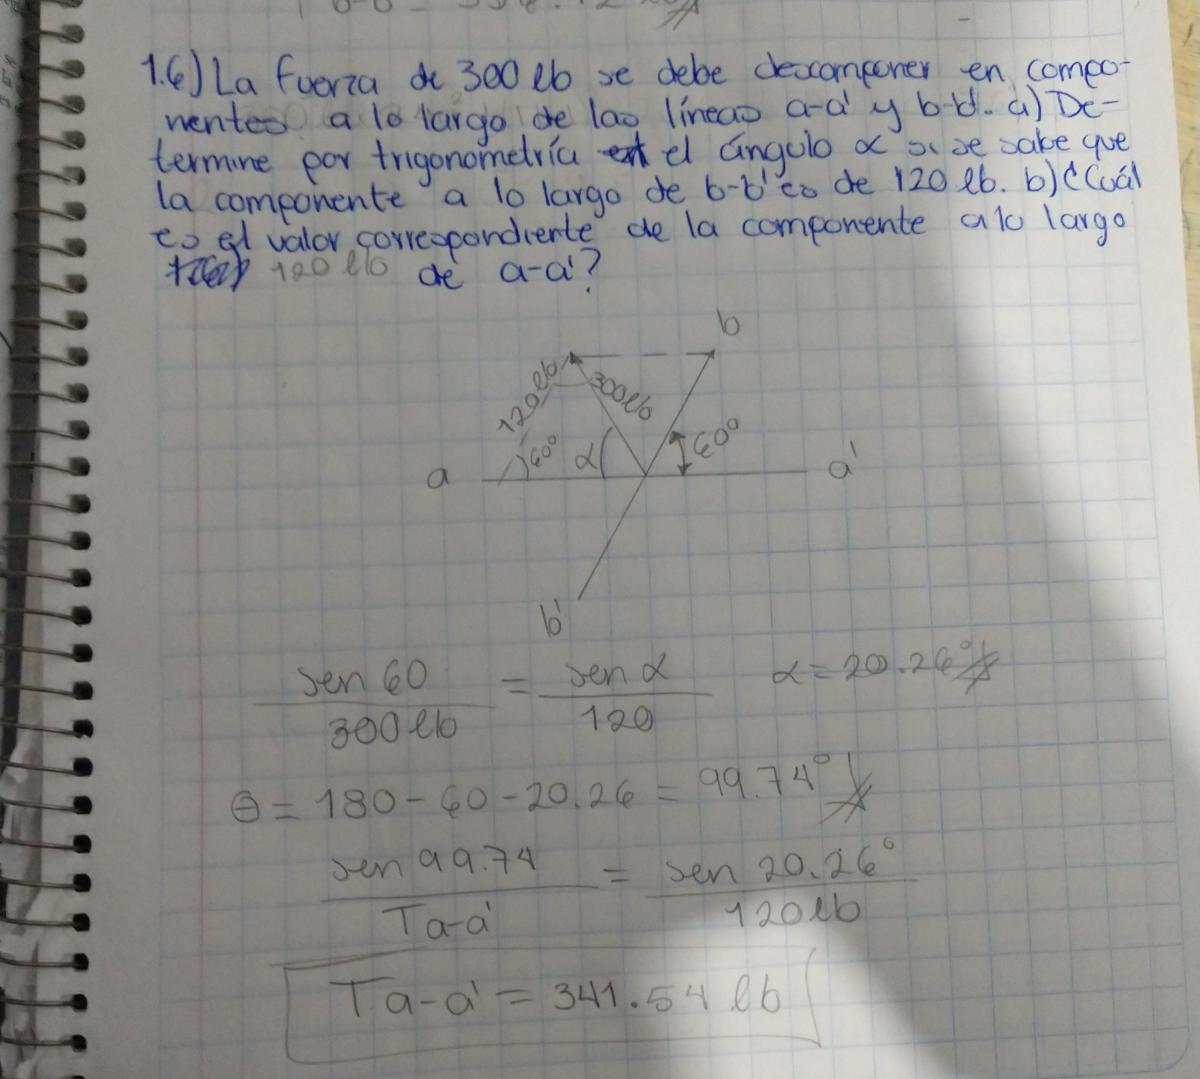 1.6) La fuerza de 300 lb se debe descomponer en compo-
nentes a lo largo de las líneas a-a' y b-b'. a) De-
termine por trigonometría el ángulo α si se sabe que
la componente a lo largo de b-b' es de 120 lb. b) ¿Cuál
es el valor correspondiente de la componente a lo largo
120 lb de a-a'?
b
120 lb
300 lb
60° α 60°
a a'
b'
sen 60 = sen α α = 20.26°
300 lb 120
θ = 180 - 60 - 20.26 = 99.74°
sen 99.74 = sen 20.26°
Ta-a' 120 lb
Ta-a' = 341.54 lb